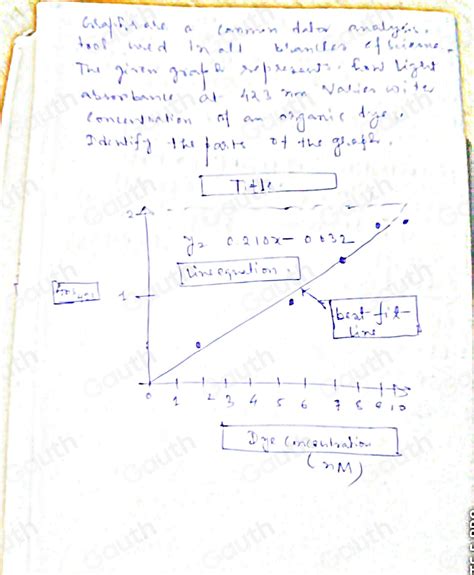 Graphs are a common data analysis
tool used in all branches of science.
The given graph represents how light
absorbance at 423 nm varies with
concentration of an organic dye.
Identify the parts of the graph.
Title
2
y= 0.210x-0.032
line equation.
1
best-fit-
line
0 1 2 3 4 5 6 7 8 9 10
Dye concentration
(nM)